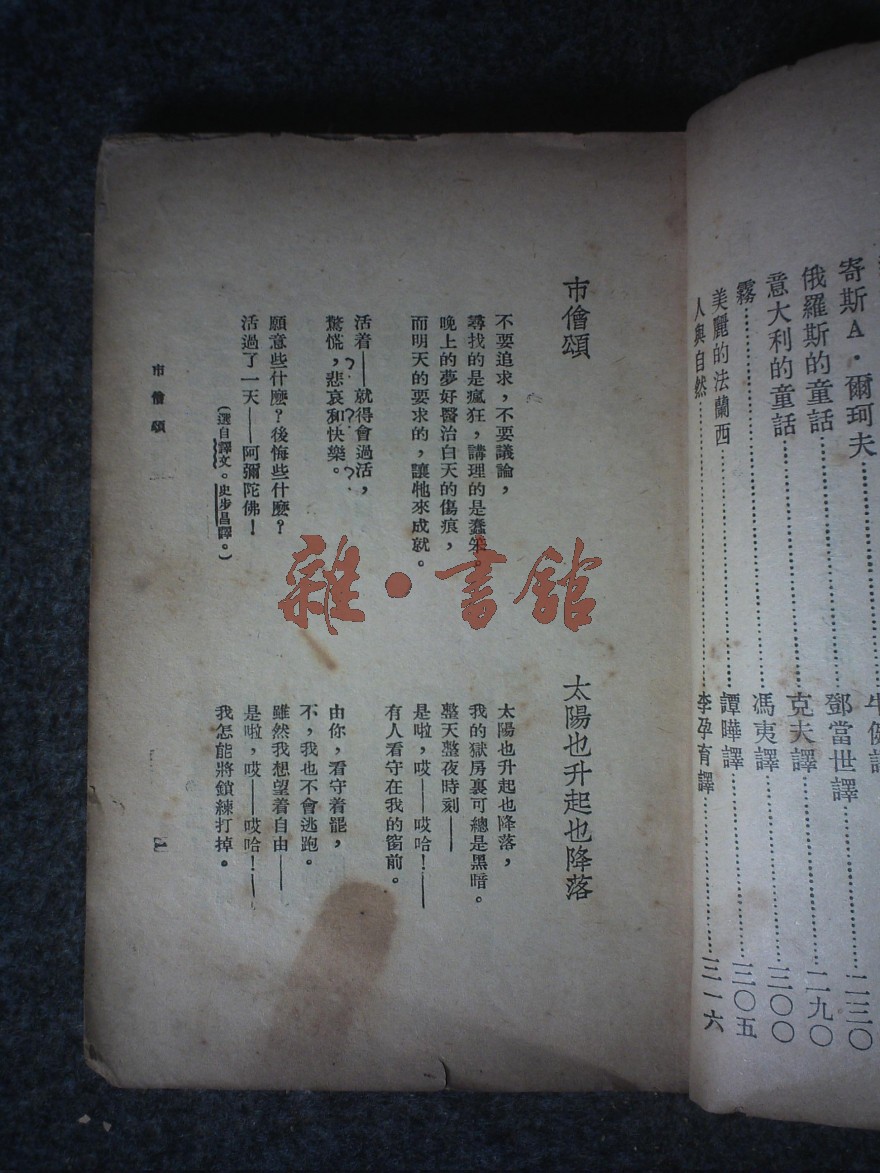 寄斯A·爾珂夫
二三〇
俄羅斯的童話
鄧當世譯
二九〇
意大利的童話
克夫譯
三〇〇
霧
馮夷譯
三〇五
美麗的法蘭西
譚曄譯
人與自然
李孕育譯
三一六
市儈頌
不要追求,不要議論,
尋找的是瘋狂,講理的是蠢笨。
晚上的夢好醫治白天的傷痕,
而明天的要求的,讓牠來成就。
活着——就得會過活,
驚慌,悲哀和快樂。
? ? ?
願意些什麼?後悔些什麼?
活過了一天——阿彌陀佛!
(選自譯文。史步昌譯。)
太陽也升起也降落
太陽也升起也降落,
我的獄房裏可總是黑暗。
整天整夜時刻——
是啦,哎——哎哈!——
有人看守在我的窗前。
由你,看守着罷,
不,我也不會逃跑。
雖然我想望着自由——
是啦,哎——哎哈!——
我怎能將鎖練打掉。
市儈頌
一
雜·書館